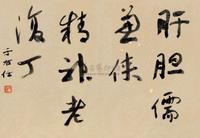 肝胆儒
兼侠
精神老
復丁
于右任